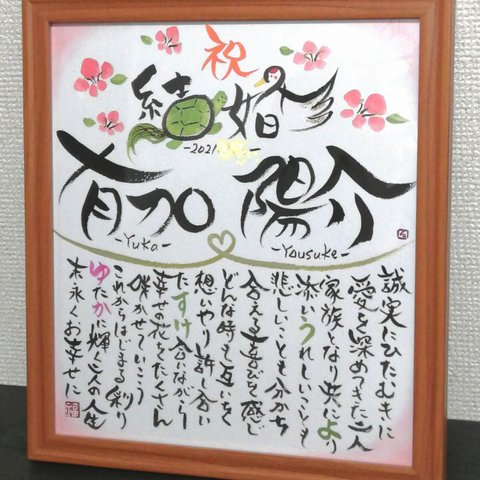 祝
結婚
-2021.
有加 陽介
-Yuka- -Yousuke-
誠実にひたむきに
愛を深めてきた二人
家族となり共により
添いうれしいことも
悲しいことも分かち
合える喜びを感じ
どんな時も互いを
想いやり許し合い
たすけ合いながら
幸せの花をたくさん
咲かせていこう
これからはじまる彩り
ゆたかに輝く二人の人生
末永くお幸せに